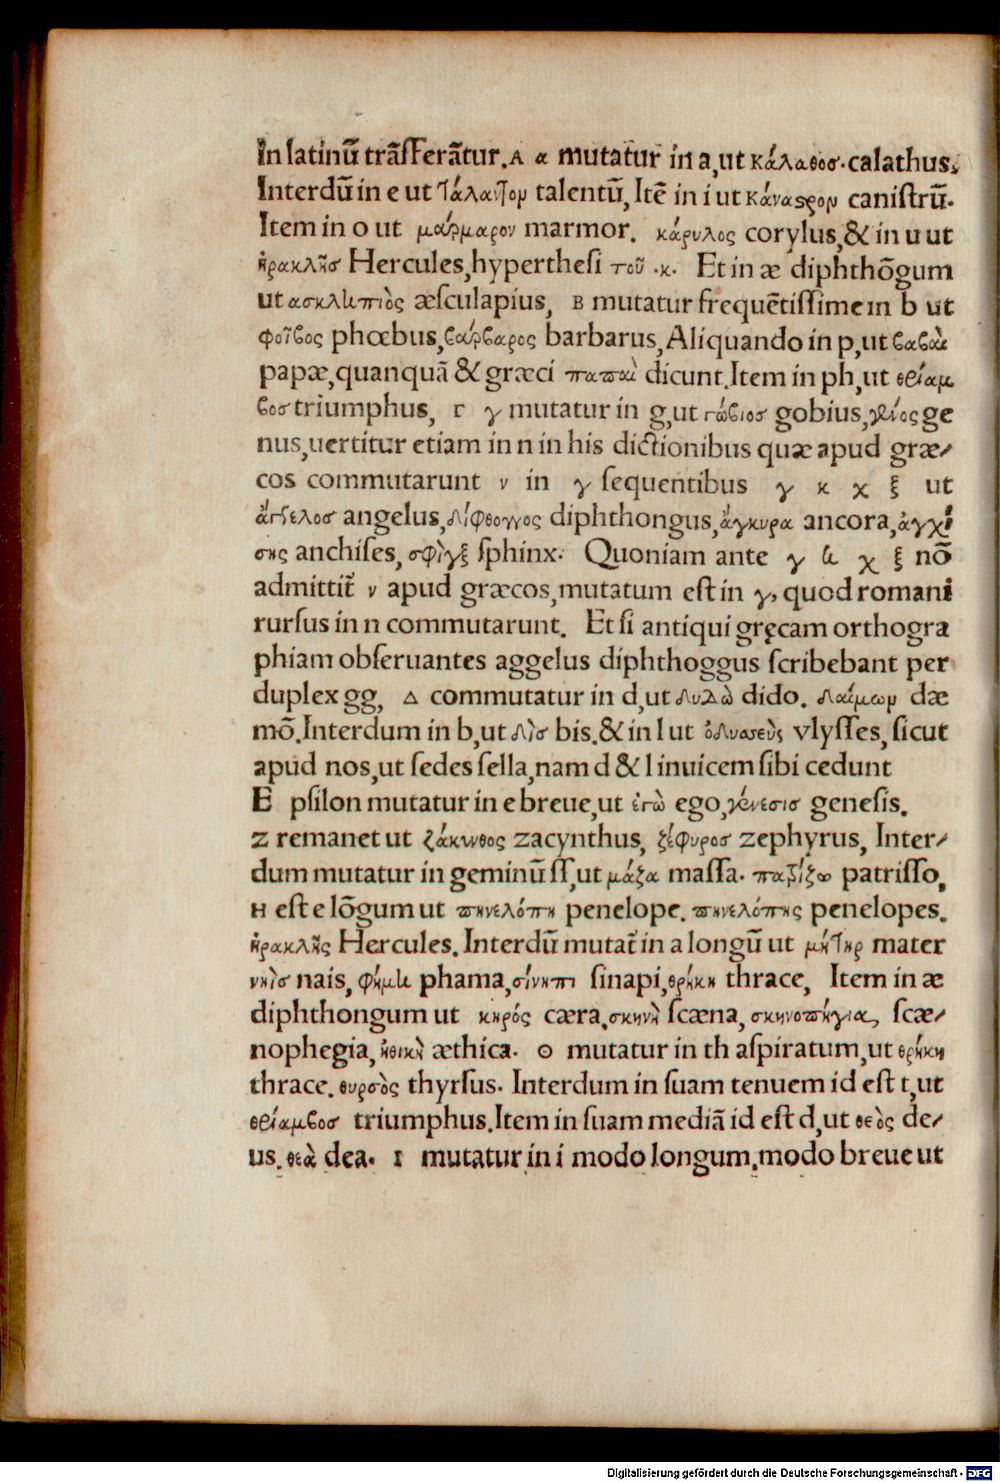 In latinū trāsferātur. Α α mutatur in a, ut κάλαθοσ. calathus.
Interdū in e ut τάλαντον talentū, Itē in i ut κάναςρον canistrū.
Item in o ut μάρμαρον marmor. κάρυλος corylus, & in u ut
ἡρακλῆσ Hercules, hyperthesi τοῦ .κ. Et in æ diphthōgum
ut ασκληπιὸς æsculapius, Β mutatur frequētissime in b ut
φοῖβος phœbus, βάρβαρος barbarus, Aliquando in p, ut βαβαὶ
papæ, quanquā & græci παπαὶ dicunt. Item in ph, ut θρίαμ
βοσ triumphus, Γ γ mutatur in g, ut γώβιοσ gobius, γένος ge
nus, uertitur etiam in n in his dictionibus quæ apud græ-
cos commutarunt ν in γ sequentibus γ κ χ ξ ut
ἄγγελοσ angelus, δίφθογγος diphthongus, ἄγκυρα ancora, ἀγχί
σης anchises, σφὶγξ sphinx. Quoniam ante γ κ χ ξ nō
admittit̄ ν apud græcos, mutatum est in γ, quod romani
rursus in n commutarunt. Et si antiqui gręcam orthogra
phiam obseruantes aggelus diphthoggus scribebant per
duplex gg, Δ commutatur in d, ut διδὼ dido. δαίμων dæ
mō. Interdum in b, ut δὶσ bis. & in l ut ὀδυσσεὺς vlysses, sicut
apud nos, ut sedes sella, nam d & l inuicem sibi cedunt
E psilon mutatur in e breue, ut ἐγὼ ego, γένεσισ genesis.
Z remanet ut ζάκυνθος zacynthus, ζέφυροσ zephyrus, Inter-
dum mutatur in geminū ss, ut μάζα massa. πατρίζω patrisso,
Η est e lōgum ut πηνελόπη penelope. πηνελόπης penelopes.
ἡρακλῆς Hercules. Interdū mutat̄ in a longū ut μήτηρ mater
νηὶσ nais, φήμη phama, σίνηπι sinapi, θρήκη thrace, Item in æ
diphthongum ut κηρός cæra, σκηνὴ scæna, σκηνοπήγια, scæ-
nophegia, ἠθικὴ æthica. Θ mutatur in th aspiratum, ut θρήκη
thrace. θυρσὸς thyrsus. Interdum in suam tenuem id est t, ut
θρίαμβοσ triumphus. Item in suam mediā id est d, ut θεὸς de-
us. θεὰ dea. Ι mutatur in i modo longum, modo breue ut
Digitalisierung gefördert durch die Deutsche Forschungsgemeinschaft - DFG